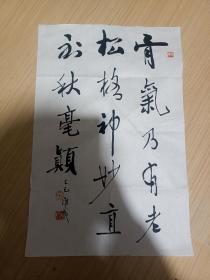 骨氣乃有老
松格神妙直
到秋毫顛